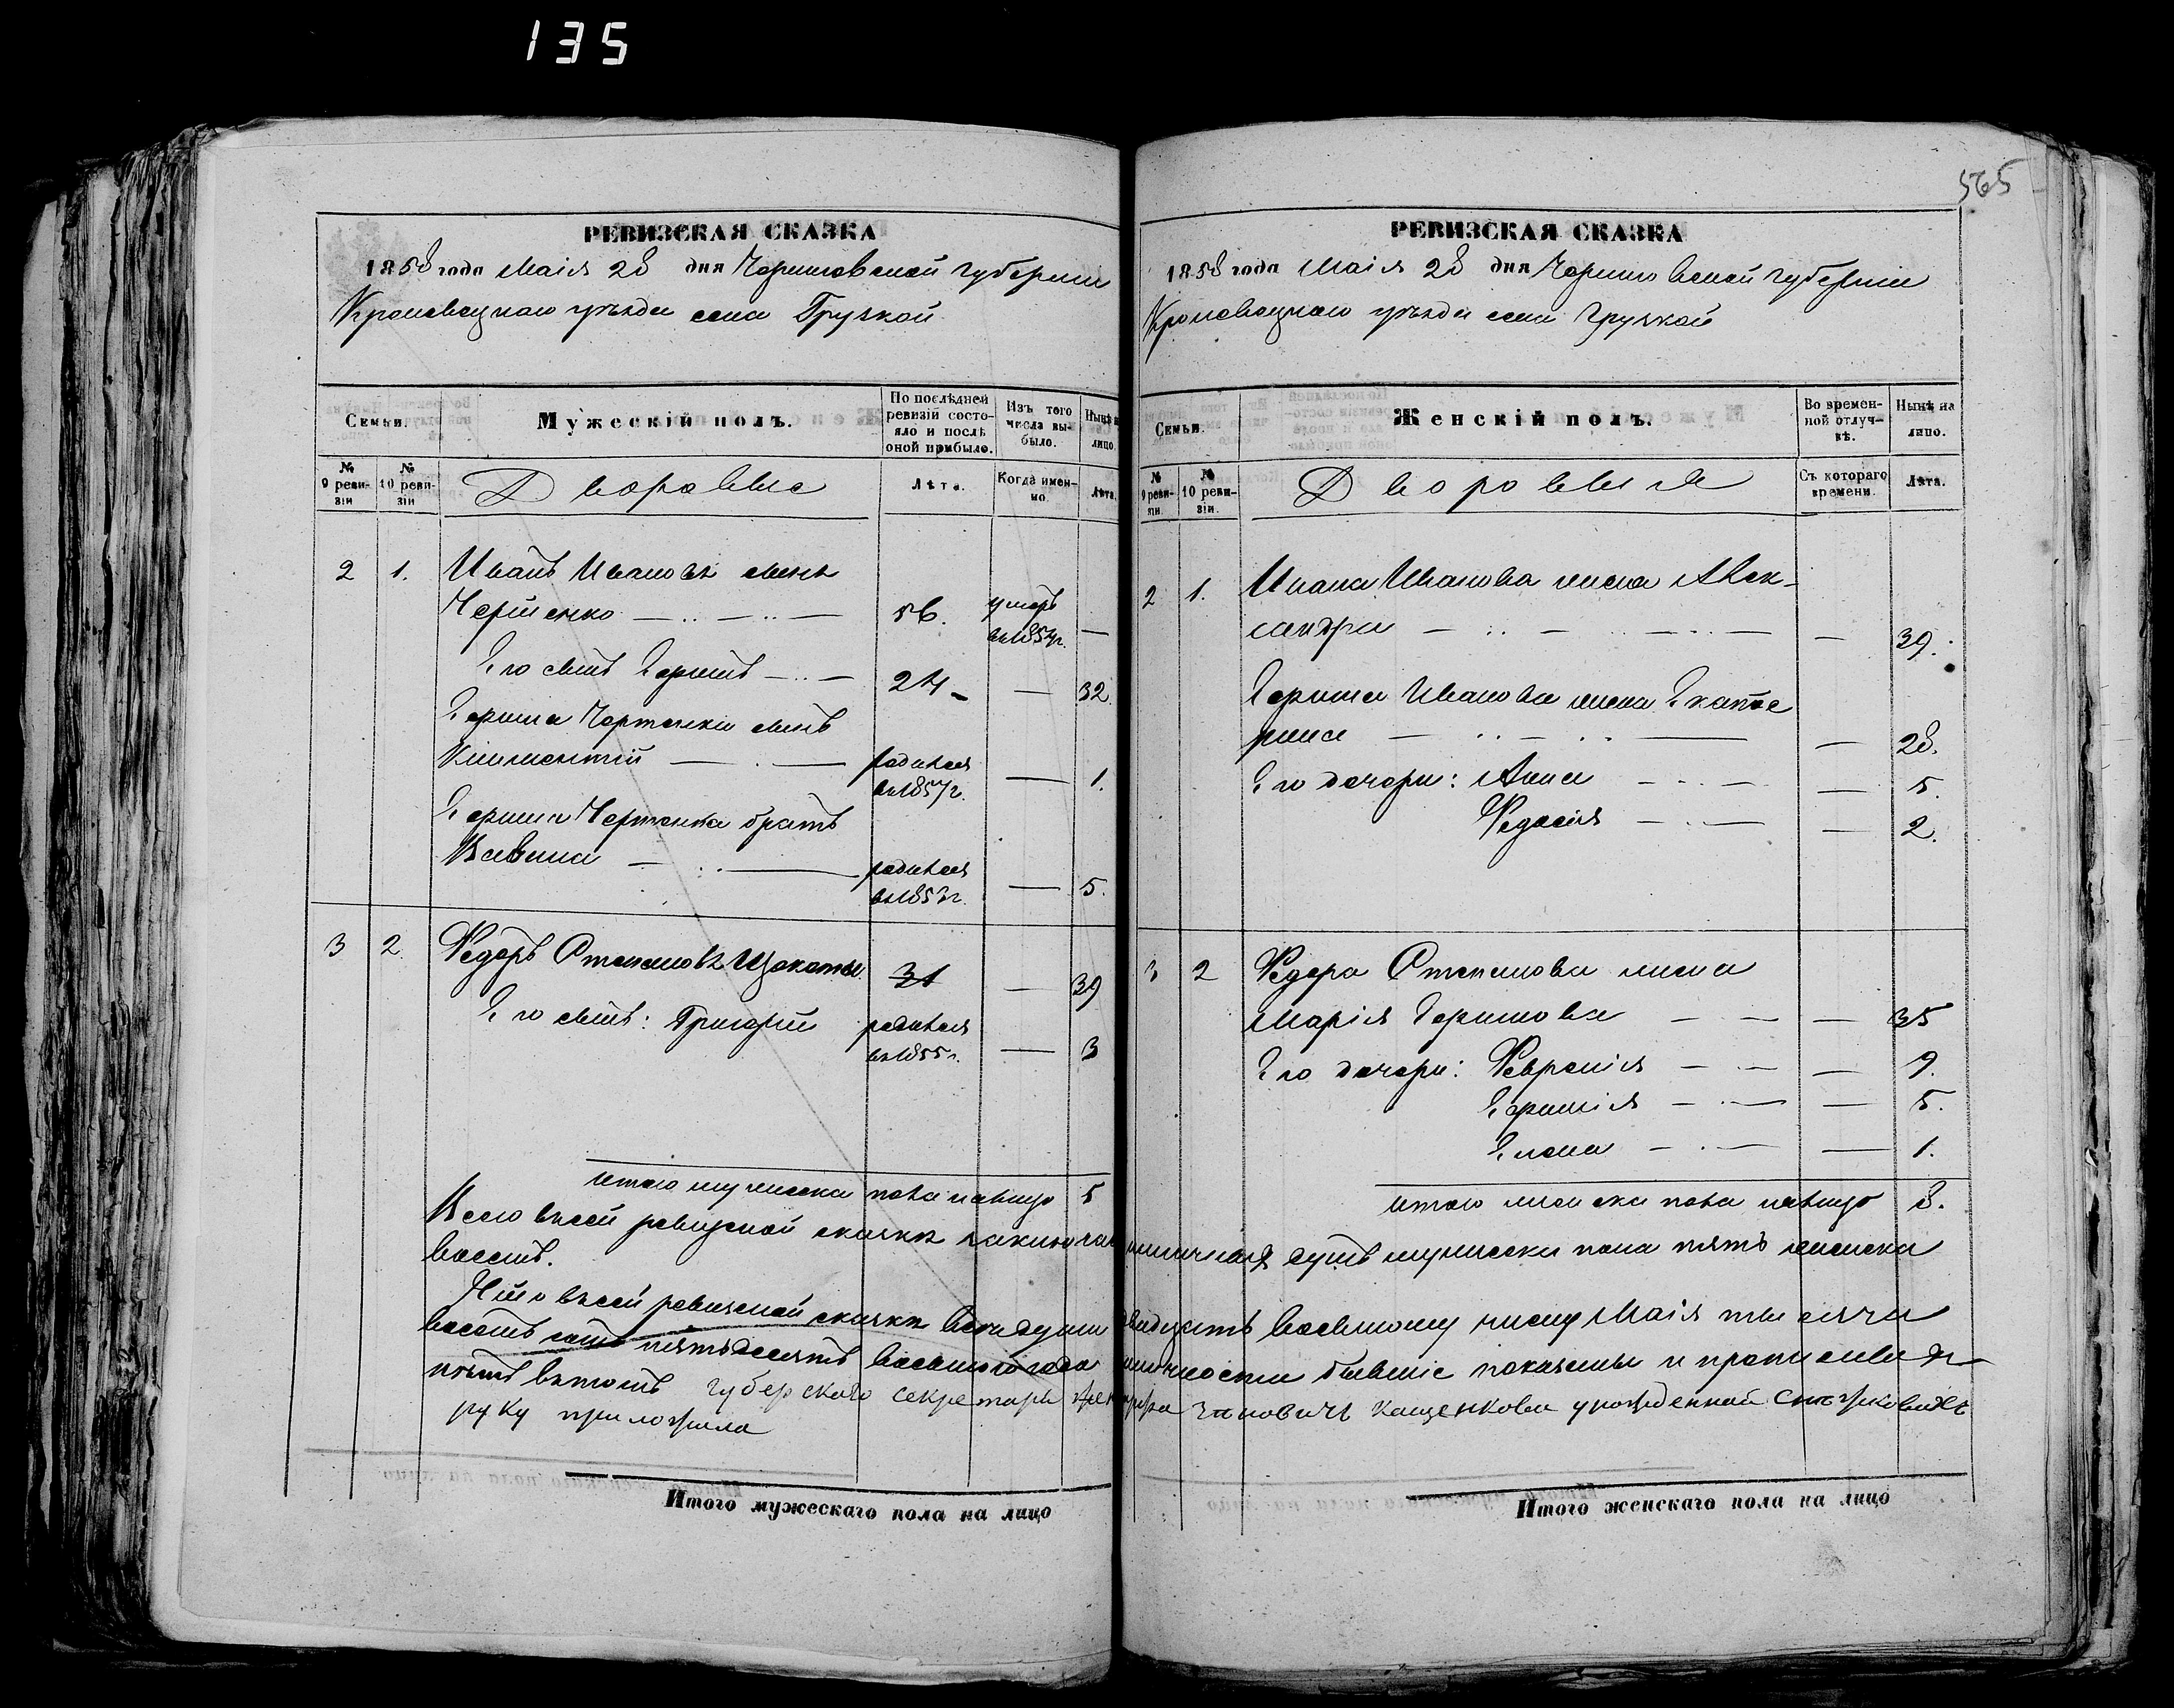 135
565
РЕВИЗСКАЯ СКАЗКА
1858 года Маія 28 дня Черниговской губерніи
Кролевецкаго уѣзда села Грузкой
Семьи.
Мужескій полъ.
По послѣдней ревизій состояло и послѣ оной прибыло.
Изъ того числа выбыло.
Нынѣ на лицо.
№ 9 ревизіи
№ 10 ревизіи
Дворовые
Лѣта.
Когда именно.
Лѣта.
2 1. Иванъ Ивановъ сынъ
Чертенко 56. умеръ въ 1854г. —
Его сынъ Ефимъ 24 — 32.
Ефима Чертенка сынъ
Климентій родился въ 1857г. — 1.
Ефима Чертенка братъ
Савва родился въ 1853г. — 5.
3 2 Федоръ Степановъ 31 — 39
Его сынъ: Григорій родился въ 1855г. — 3
итого мужеска пола налицо 5
Итого мужескаго пола на лицо
РЕВИЗСКАЯ СКАЗКА
1858 года Маія 28 дня Черниговской губерніи
Кролевецкаго уѣзда села Грузкой
Семьи.
Женскій полъ.
Во временной отлучкѣ.
Нынѣ на лицо.
№ 9 ревизіи.
№ 10 ревизіи.
Дворовыя
Съ котораго времени.
Лѣта.
2 1. Ивана Иванова жена Алек-
сандра — 39.
Ефима Иванова жена Екате
рина — 28.
Его дочери: Анна — 5.
Федосія — 2.
3 2 Федора Степанова жена
Марія Ефимова — 35
Его дочери: Февронія — 9.
Ефимія — 5.
Елена — 1.
итого женска пола налицо 8.
Всего въ сей ревизской сказкѣ наличныхъ душъ мужеска пола пять женска
восемь.
Что въ сей ревизской сказкѣ все души двадцать восьмому числу Маія тысяча
восемь сотъ пятьдесятъ восьмого года бывшіе показаны и прописныхъ
нѣтъ въ томъ губерского секретаря Кащенкова урожденной
руку приложила
Итого женскаго пола на лицо